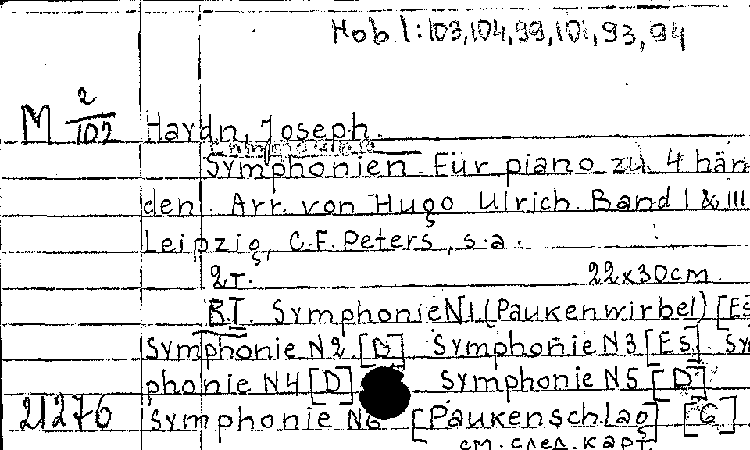 Hob I:103,104,99,101,93,94
M 2/102 Haydn, Joseph.
Symphonien. Für piano zu 4 hän
den. Arr. von Hugo Ulrich. Band I & III
Leipzig, C.F. Peters, s.a.
2т. 22x30cm.
B.I. Symphonie N1 (Paukenwirbel) [Es
Symphonie N2 [D] Symphonie N3 [Es] Sym
phonie N4 [D] Symphonie N5 [D]
21276 Symphonie N6 [Paukenschlag] [G]
см. след. карт.